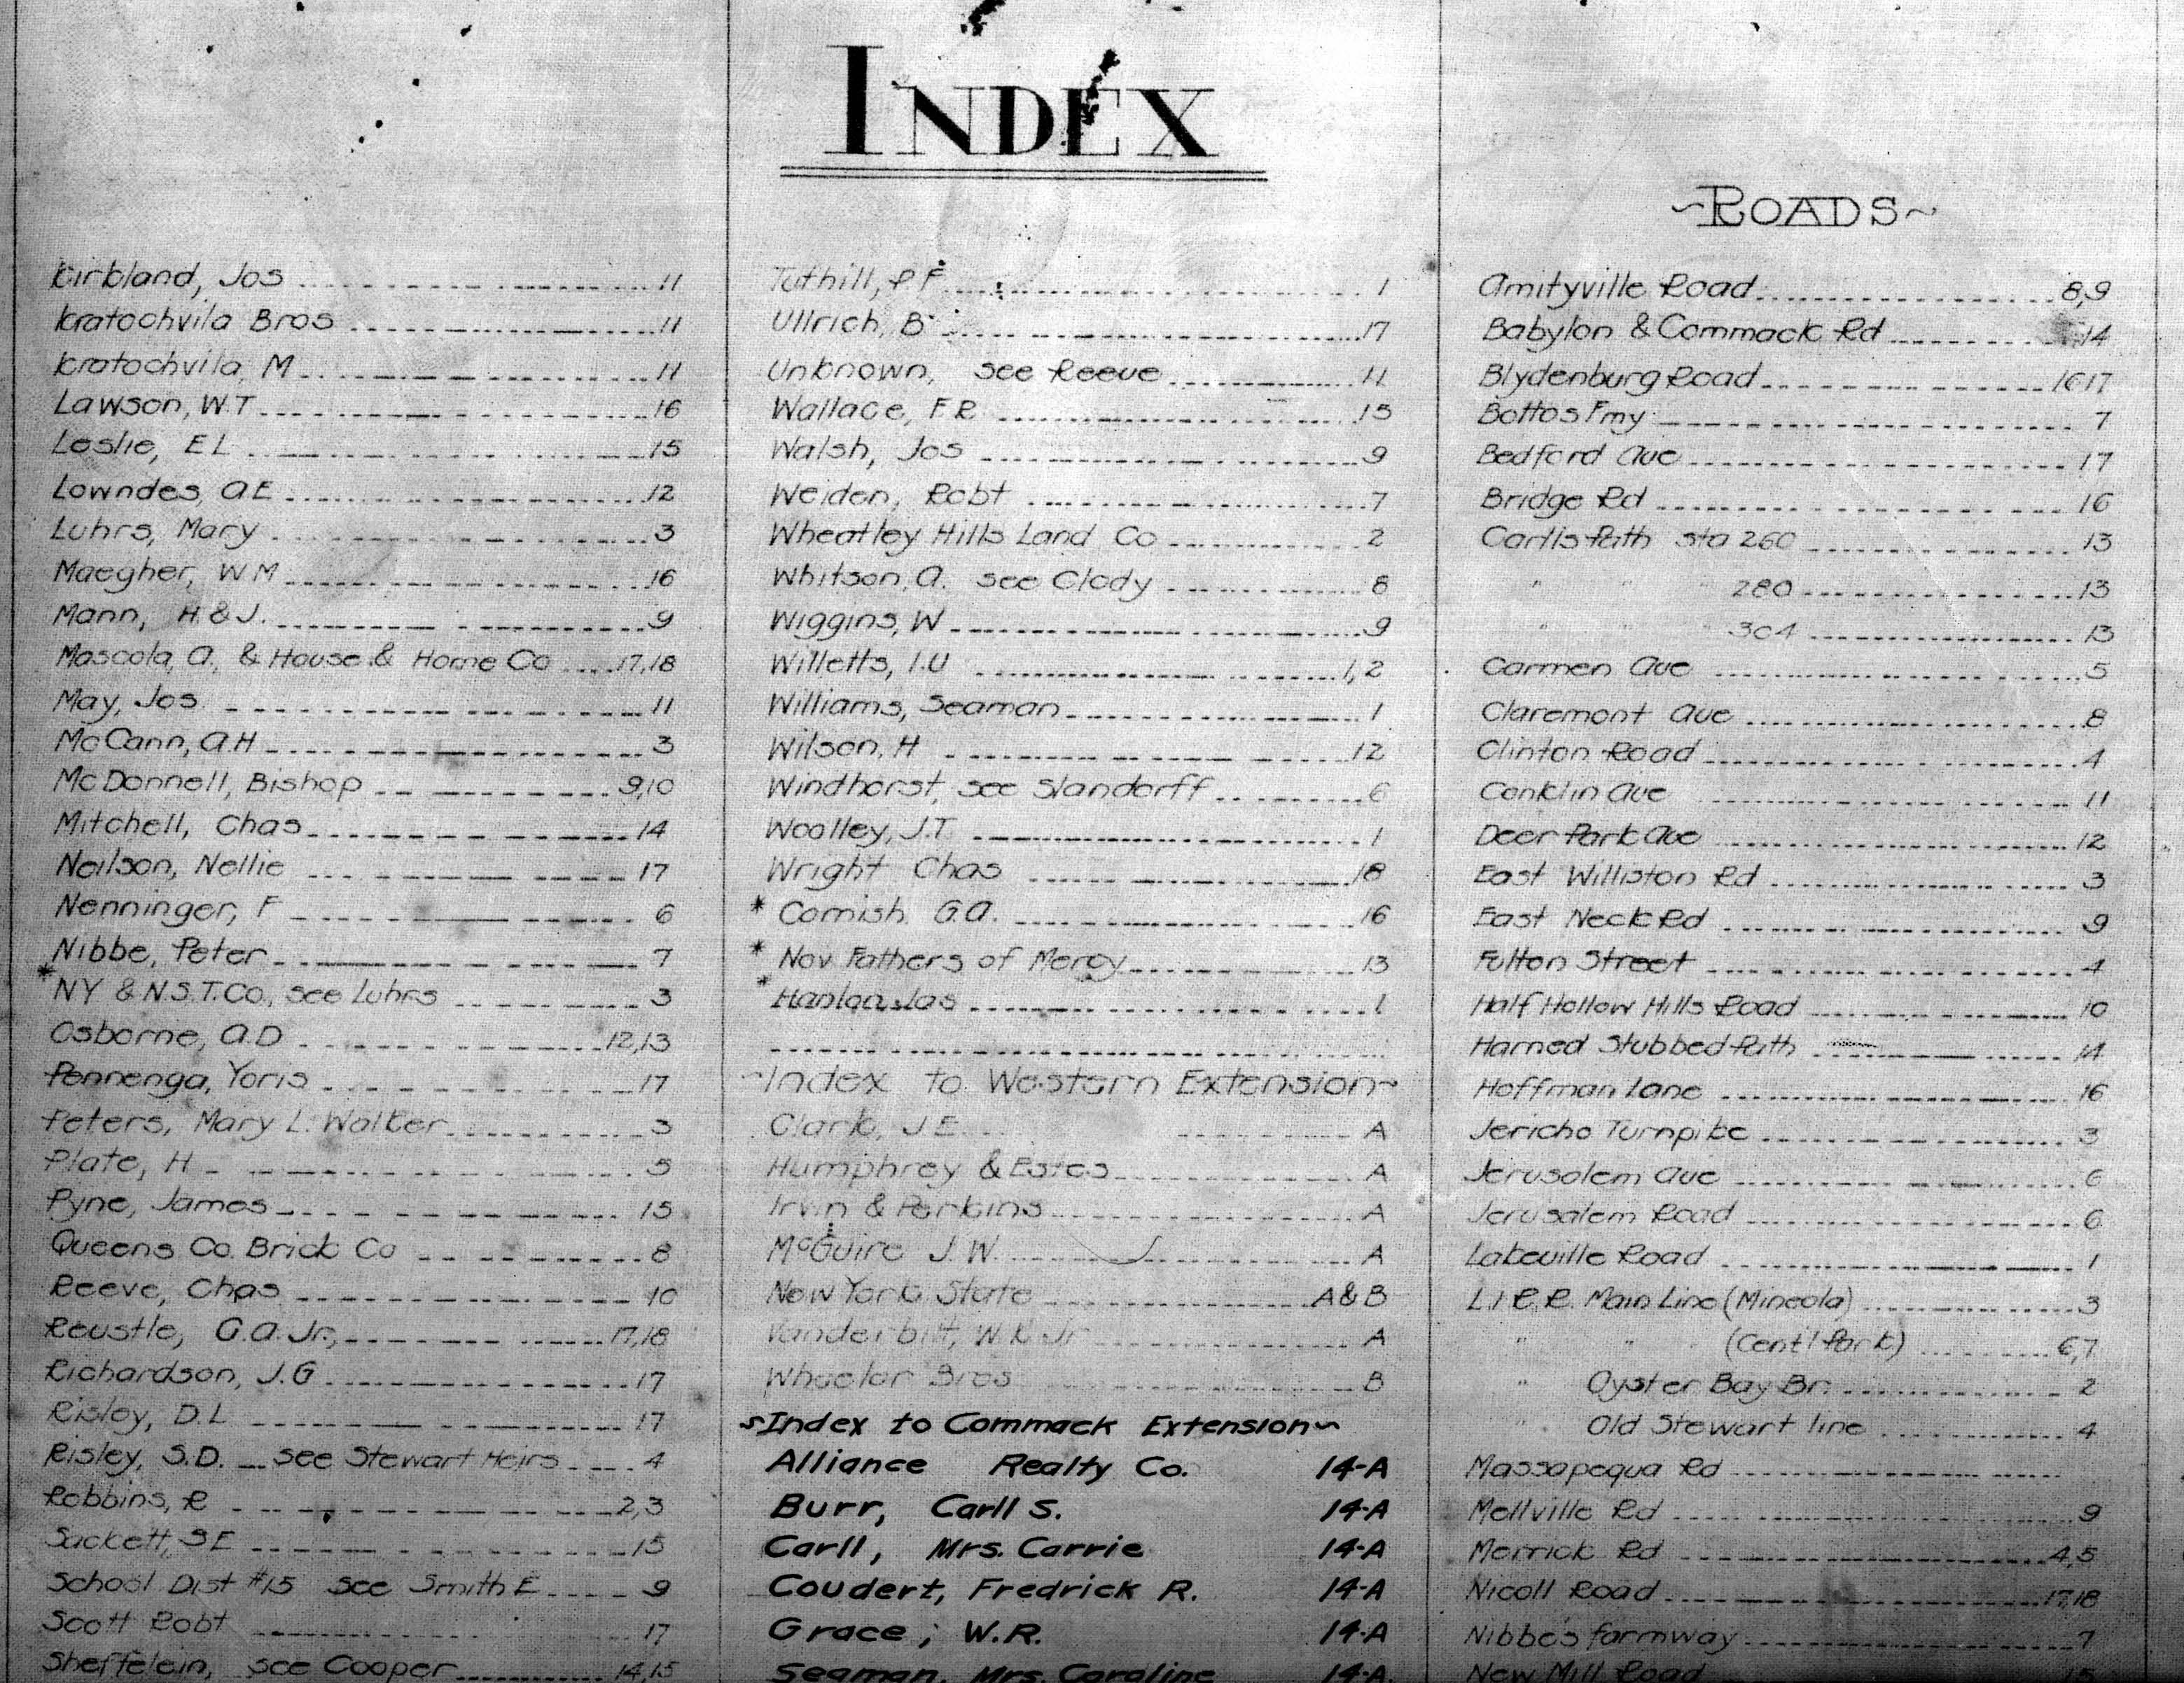 INDEX
Kirkland, Jos 11
Kratochvila Bros 11
Kratochvila, M 11
Lawson, W.T 16
Leslie, E L 15
Lowndes, A E 12
Luhrs, Mary 3
Maegher, W M 16
Mann, H. & J. 9
Mascola, A. & House & Home Co 17,18
May, Jos 11
McCann, A.H 3
McDonnell, Bishop 9,10
Mitchell, Chas 14
Neilson, Nellie 17
Nenninger, F 6
Nibbe, Peter 7
* NY & N.S.T.Co., see Luhrs 3
Osborne, A.D 12,13
Pennenga, Yoris 17
Peters, Mary L. Walker 3
Plate, H 5
Pyne, James 15
Queens Co. Brick Co 8
Reeve, Chas 10
Reustle, G.A. Jr., 17,18
Richardson, J.G 17
Risley, D.L 17
Risley, S.D. see Stewart Heirs 4
Robbins, R 2,3
Sackett, S E 15
School Dist #15 see Smith E 9
Scott Robt 17
Sheffelein, see Cooper 14,15
Tuthill, P F 1
Ullrich, B 17
Unknown, see Reeve 11
Wallace, F.R 15
Walsh, Jos 9
Weiden, Robt 7
Wheatley Hills Land Co 2
Whitson, A. see Clody 8
Wiggins, W 9
Willetts, I.U 1,2
Williams, Seaman 1
Wilson, H 12
Windhorst, see Slandorff 6
Woolley, J.T. 1
Wright Chas 18
* Cornish. G.A. 16
* Nov. Fathers of Mercy 13
* Hanlan Jas 1
~Index to Western Extension~
Clark, J E A
Humphrey & Estes A
Irvin & Perkins A
McGuire J.W. A
New York State A & B
Vanderbilt, W.K. Jr A
Wheeler Bros B
~Index to Commack Extension~
Alliance Realty Co. 14-A
Burr, Carll S. 14-A
Carll, Mrs. Carrie 14-A
Coudert, Fredrick R. 14-A
Grace, W.R. 14-A
Seaman, Mrs. Caroline 14-A
~ROADS~
Amityville Road 8,9
Babylon & Commack Rd 14
Blydenburg Road 16 17
Bottos Fmy 7
Bedford Ave 17
Bridge Rd 16
Carlls Path sta 260 13
" " " 280 13
" " " 304 13
Carmen Ave 5
Claremont Ave 8
Clinton Road 4
Conklin Ave 11
Deer Park Ave 12
East Williston Rd 3
East Neck Rd 9
Fulton Street 4
Half Hollow Hills Road 10
Harned Stubbed Path 14
Hoffman Lane 16
Jericho Turnpike 3
Jerusalem Ave 6
Jerusalem Road 6
Lakeville Road 1
L.I.R.R. Main Line (Mineola) 3
" " (Cent'l Park) 6,7
" Oyster Bay Br. 2
" Old Stewart line 4
Massapequa Rd
Mellville Rd 9
Merrick Rd 4,5
Nicoll Road 17,18
Nibbe's farmway 7
New Mill Road 15